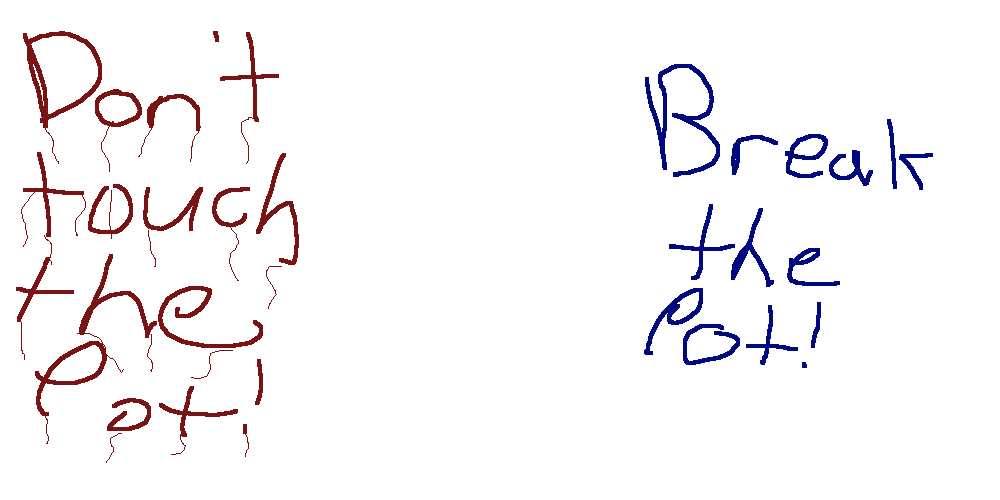 Don't
touch
the
Pot!
Break
the
Pot!